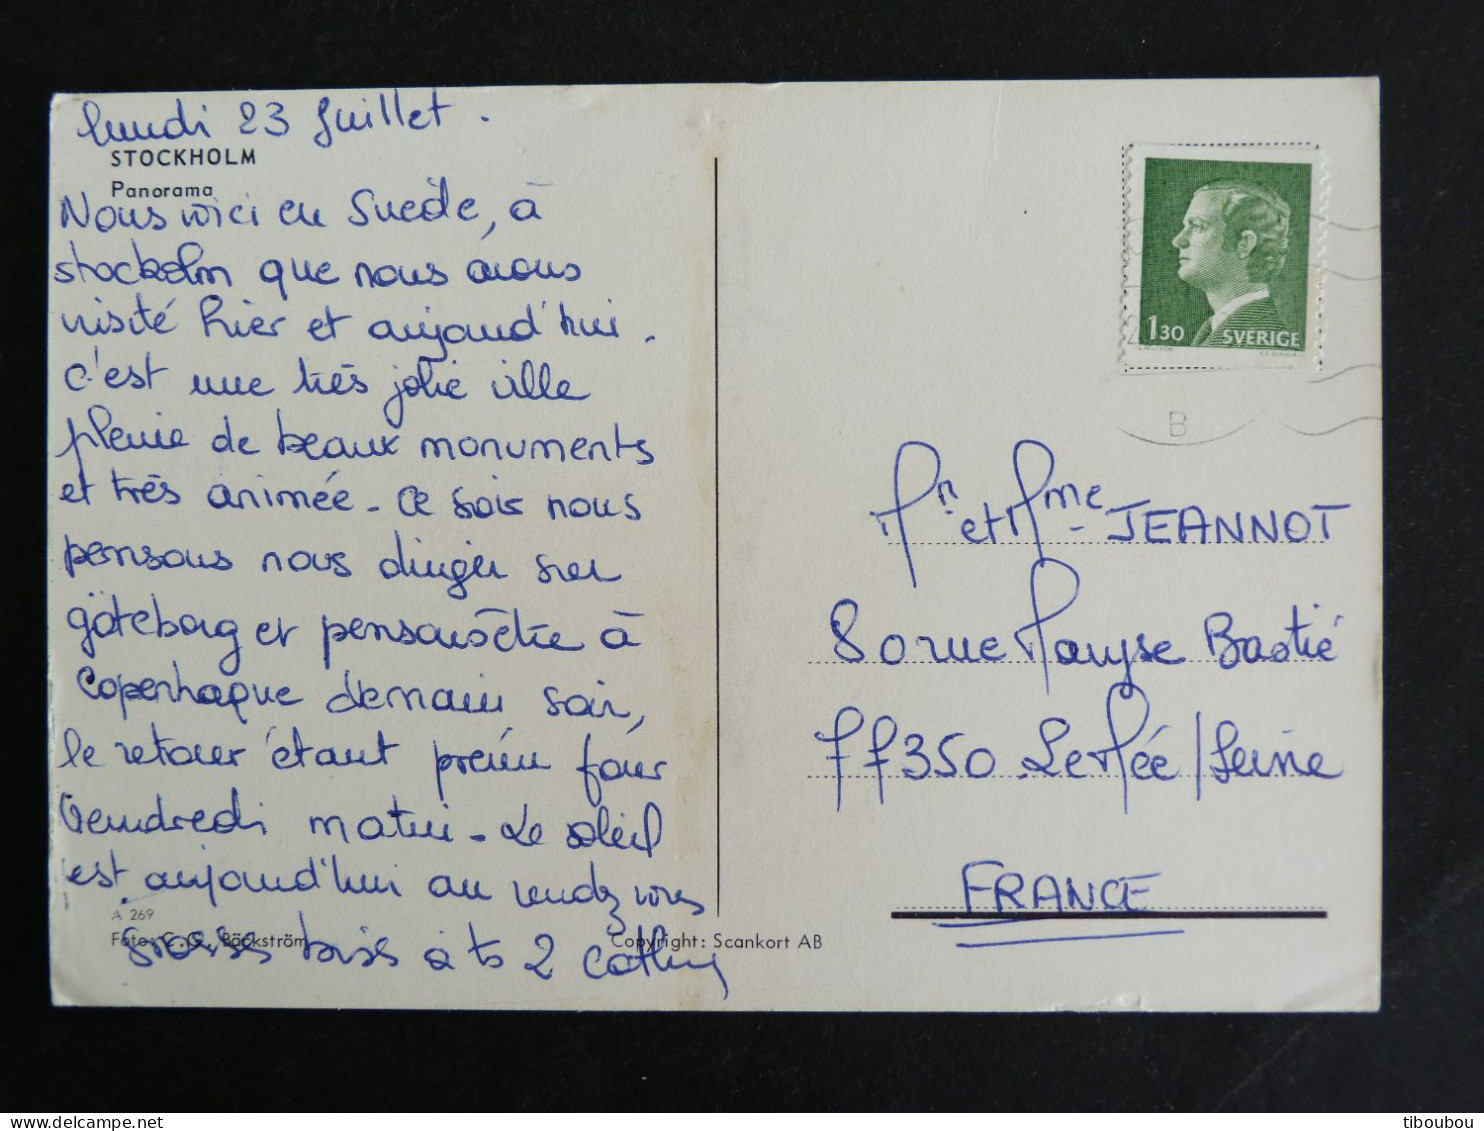 lundi 23 Juillet.
STOCKHOLM
Panorama
Nous voici en Suède, à
stockolm que nous avons
visité hier et aujourd'hui.
c'est une très jolie ville
pleine de beaux monuments
et très animée - ce soir nous
pensons nous diriger sur
göteborg et pensons être à
Copenhague demain soir,
le retour étant prévu pour
Vendredi matin - Le soleil
est aujourd'hui au rendez vous
A 269
Foto: C.G. Bäckström
Copyright: Scankort AB
Grosses bises à ts 2 Cathy
1.30 SVERIGE
B
Mr et Mme JEANNOT
80 rue Maryse Bastié
77350 Le Mée / Seine
FRANCE
tiboubou